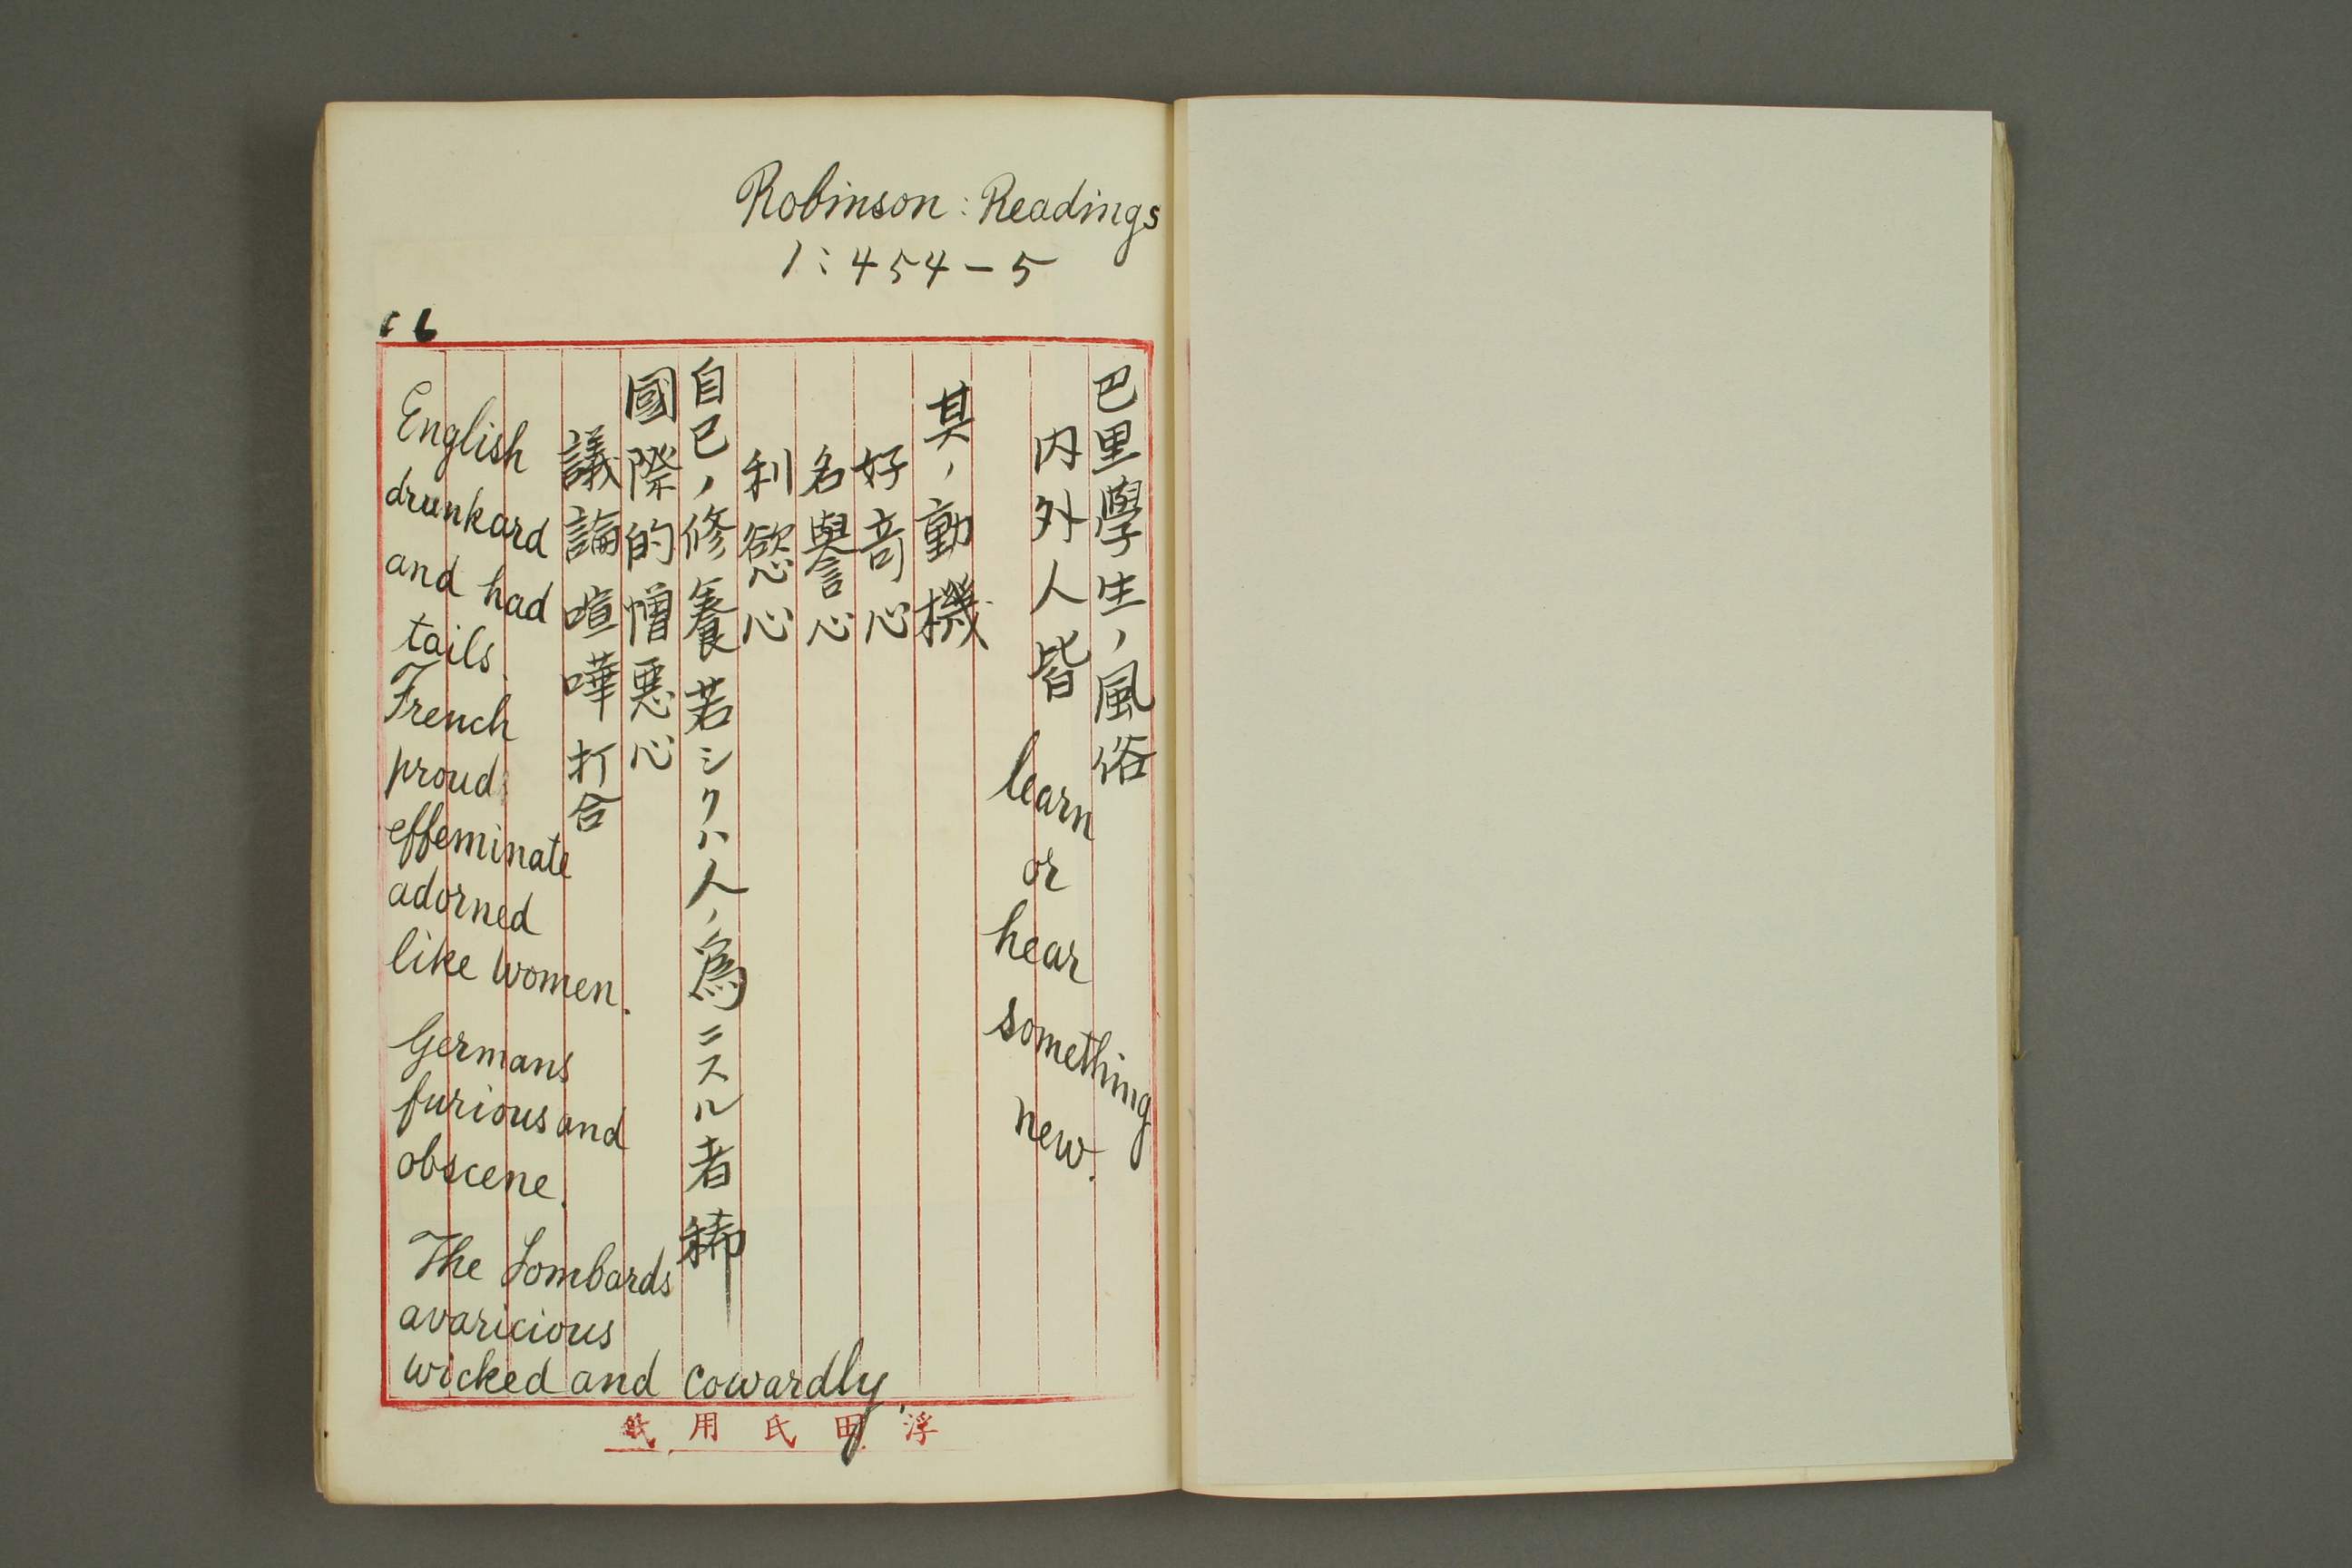 Robinson: Readings
1:454-5
巴里學生ノ風俗
内外人皆 learn or hear something new.
其ノ動機
好竒心
名譽心
利慾心
自已ノ修養若シクハ人ノ爲ニスル者稀
國際的憎悪心
議論喧嘩打合
English
drunkard
and had
tails
French
proud
effeminate
adorned
like women.
Germans
furious and
obscene.
The Lombards
avaricious
wicked and cowardly.
浮田氏用紙